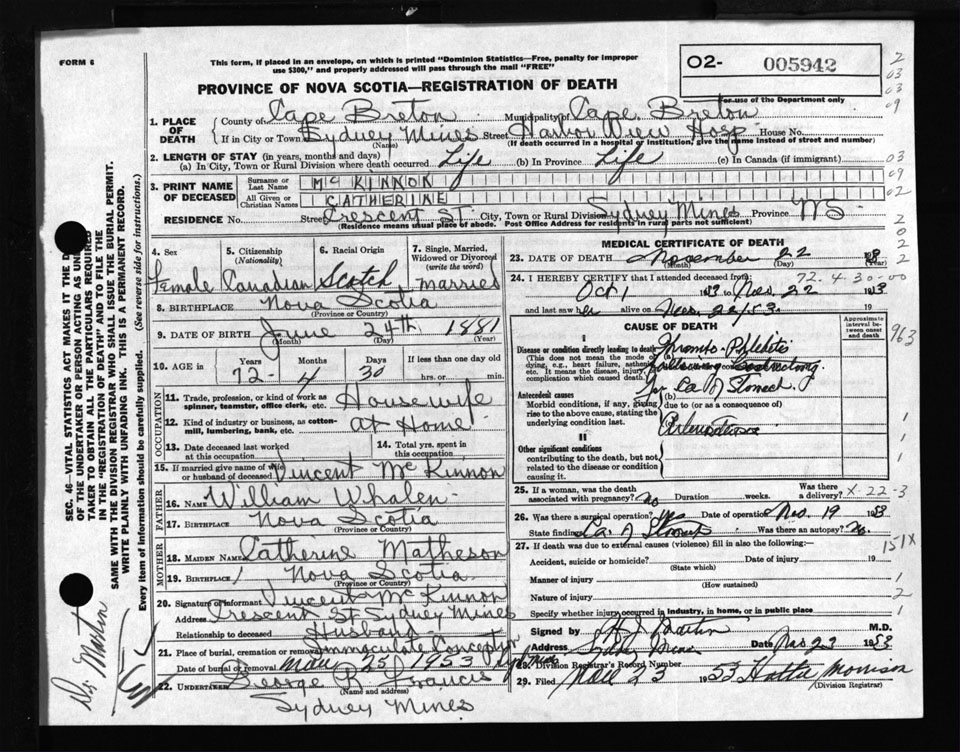 FORM 6
This form, if placed in an envelope, on which is printed "Dominion Statistics—Free, penalty for improper
use $300," and properly addressed will pass through the mail "FREE"
O2- 005942
For use of the Department only
PROVINCE OF NOVA SCOTIA—REGISTRATION OF DEATH
1. PLACE OF DEATH
County of Cape Breton Municipality of Cape Breton
If in City or Town Sydney Mines Street Harbor View Hosp House No.
(Name) (If death occurred in a hospital or institution, give the name instead of street and number)
2. LENGTH OF STAY (in years, months and days)
(a) In City, Town or Rural Division where death occurred Life (b) In Province Life (c) In Canada (if immigrant)
3. PRINT NAME OF DECEASED
Surname or Last Name McKINNON
All Given or Christian Names CATHERINE
RESIDENCE No. Street Crescent St. City, Town or Rural Division Sydney Mines Province NS
(Residence means usual place of abode. Post Office Address for residents in rural parts not sufficient)
4. Sex Female
5. Citizenship (Nationality) Canadian
6. Racial Origin Scotch
7. Single, Married, Widowed or Divorced (write the word) Married
8. BIRTHPLACE Nova Scotia
(Province or Country)
9. DATE OF BIRTH June 24th 1881
(Month) (Day) (Year)
10. AGE in Years 72 Months 4 Days 30 If less than one day old hrs. or min.
OCCUPATION
11. Trade, profession, or kind of work as spinner, teamster, office clerk, etc. Housewife
12. Kind of industry or business, as cotton-mill, lumbering, bank, etc. at Home
13. Date deceased last worked at this occupation
14. Total yrs. spent in this occupation
15. If married give name of wife or husband of deceased Vincent McKinnon
FATHER
16. NAME William Whalen
17. BIRTHPLACE Nova Scotia
(Province or Country)
MOTHER
18. MAIDEN NAME Catherine Matheson
19. BIRTHPLACE Nova Scotia
(Province or Country)
20. Signature of informant Vincent McKinnon
Address Crescent St Sydney Mines
Relationship to deceased Husband
21. Place of burial, cremation or removal Immaculate Conception
Date of burial or removal 25 1953
22. UNDERTAKER George R Francis
(Name and address)
Sydney Mines
MEDICAL CERTIFICATE OF DEATH
23. DATE OF DEATH November 22
(Month) (Day)
24. I HEREBY CERTIFY that I attended deceased from: 72.4.30-00
Oct 1 to Nov. 22 19
and last saw alive on Nov. 22/53 19
CAUSE OF DEATH
Approximate interval between onset and death
I
Disease or condition directly leading to death
(This does not mean the mode of dying, e.g., heart failure, asthenia, etc. It means the disease, injury, or complication which caused death.)
(a)
for Ca of Stomach
Antecedent causes
Morbid conditions, if any, giving rise to the above cause, stating the underlying condition last.
(b)
due to (or as a consequence of)
II
Other significant conditions
contributing to the death, but not related to the disease or condition causing it.
25. If a woman, was the death associated with pregnancy? no Duration weeks. Was there a delivery? X-22-3
26. Was there a surgical operation? Date of operation Nov. 19
State findings Ca of Stomach Was there an autopsy? No.
27. If death was due to external causes (violence) fill in also the following:—
151X
Accident, suicide or homicide? Date of injury 19
(State which)
Manner of injury
(How sustained)
Nature of injury
Specify whether injury occurred in industry, in home, or in public place
Signed by M.D.
Address Sydney Mines Date Nov 23 1953
28. Division Registrar's Record Number
29. Filed Nov 23 1953 Hattie Morrison
(Division Registrar)
963
SEC. 46—VITAL STATISTICS ACT MAKES IT THE
OF THE UNDERTAKER OR PERSON ACTING AS
TAKER TO OBTAIN ALL THE PARTICULARS REQUIRED
IN THE "REGISTRATION OF DEATH" AND TO FILE THE
SAME WITH THE DIVISION REGISTRAR WHO SHALL ISSUE THE BURIAL PERMIT.
WRITE PLAINLY WITH UNFADING INK. THIS IS A PERMANENT RECORD.
Every item of information should be carefully supplied. (See reverse side for instructions.)
Dr. Martin